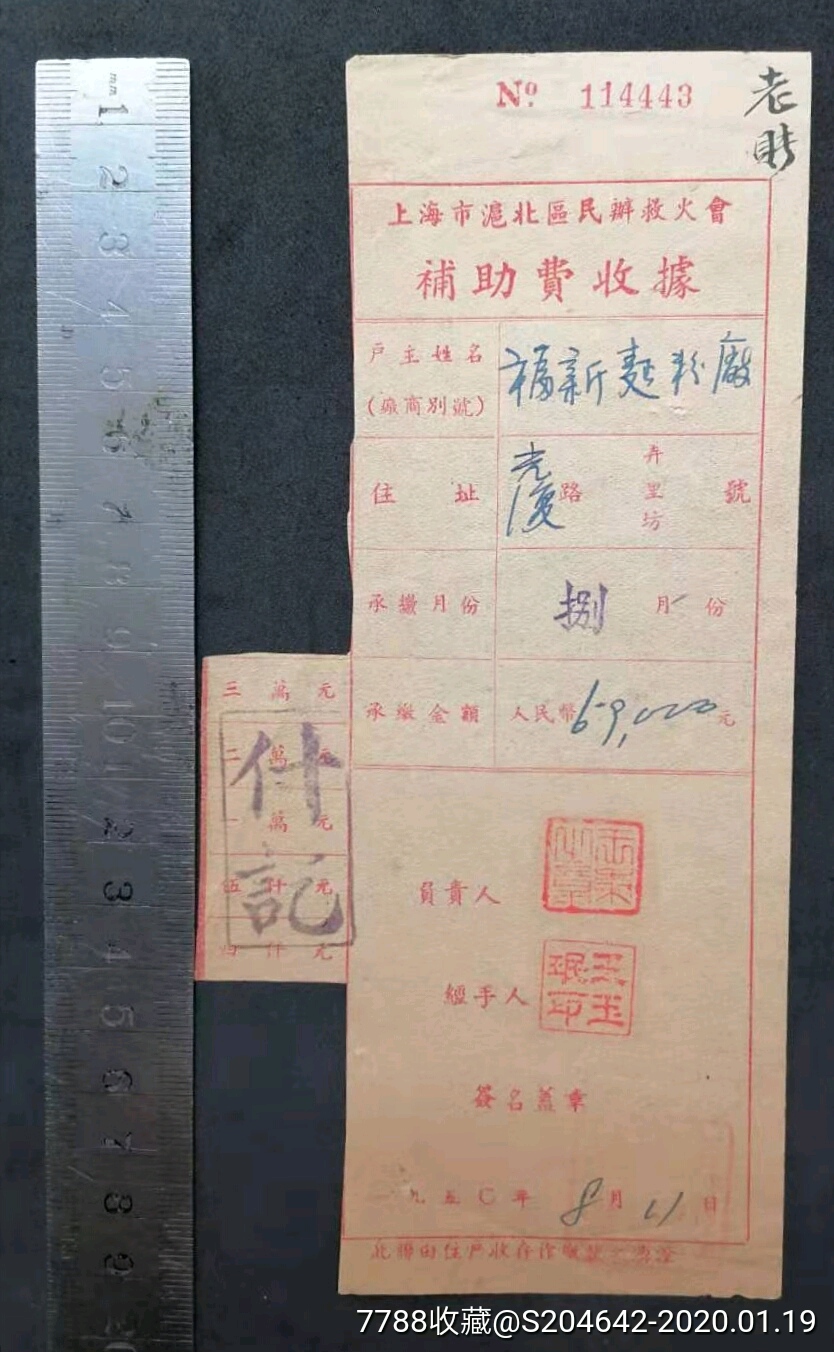 Nº 114443
老財
上海市滬北區民辦救火會
補助費收據
戶主姓名
(廠商別號)
福新麵粉廠
住址
光復路
弄里坊
號
承繳月份
捌月份
承繳金額
人民幣69,000元
三萬元
二萬元
一萬元
伍仟元
四仟元
什記
負責人
經手人
王玉珉印
簽名蓋章
一九五〇年8月11日
此聯由住戶收存作繳款之憑證
mm 1 2 3 4 5 6 7 8 9 10 1 2 3 4 5 6 7 8 9
7788收藏@S204642-2020.01.19